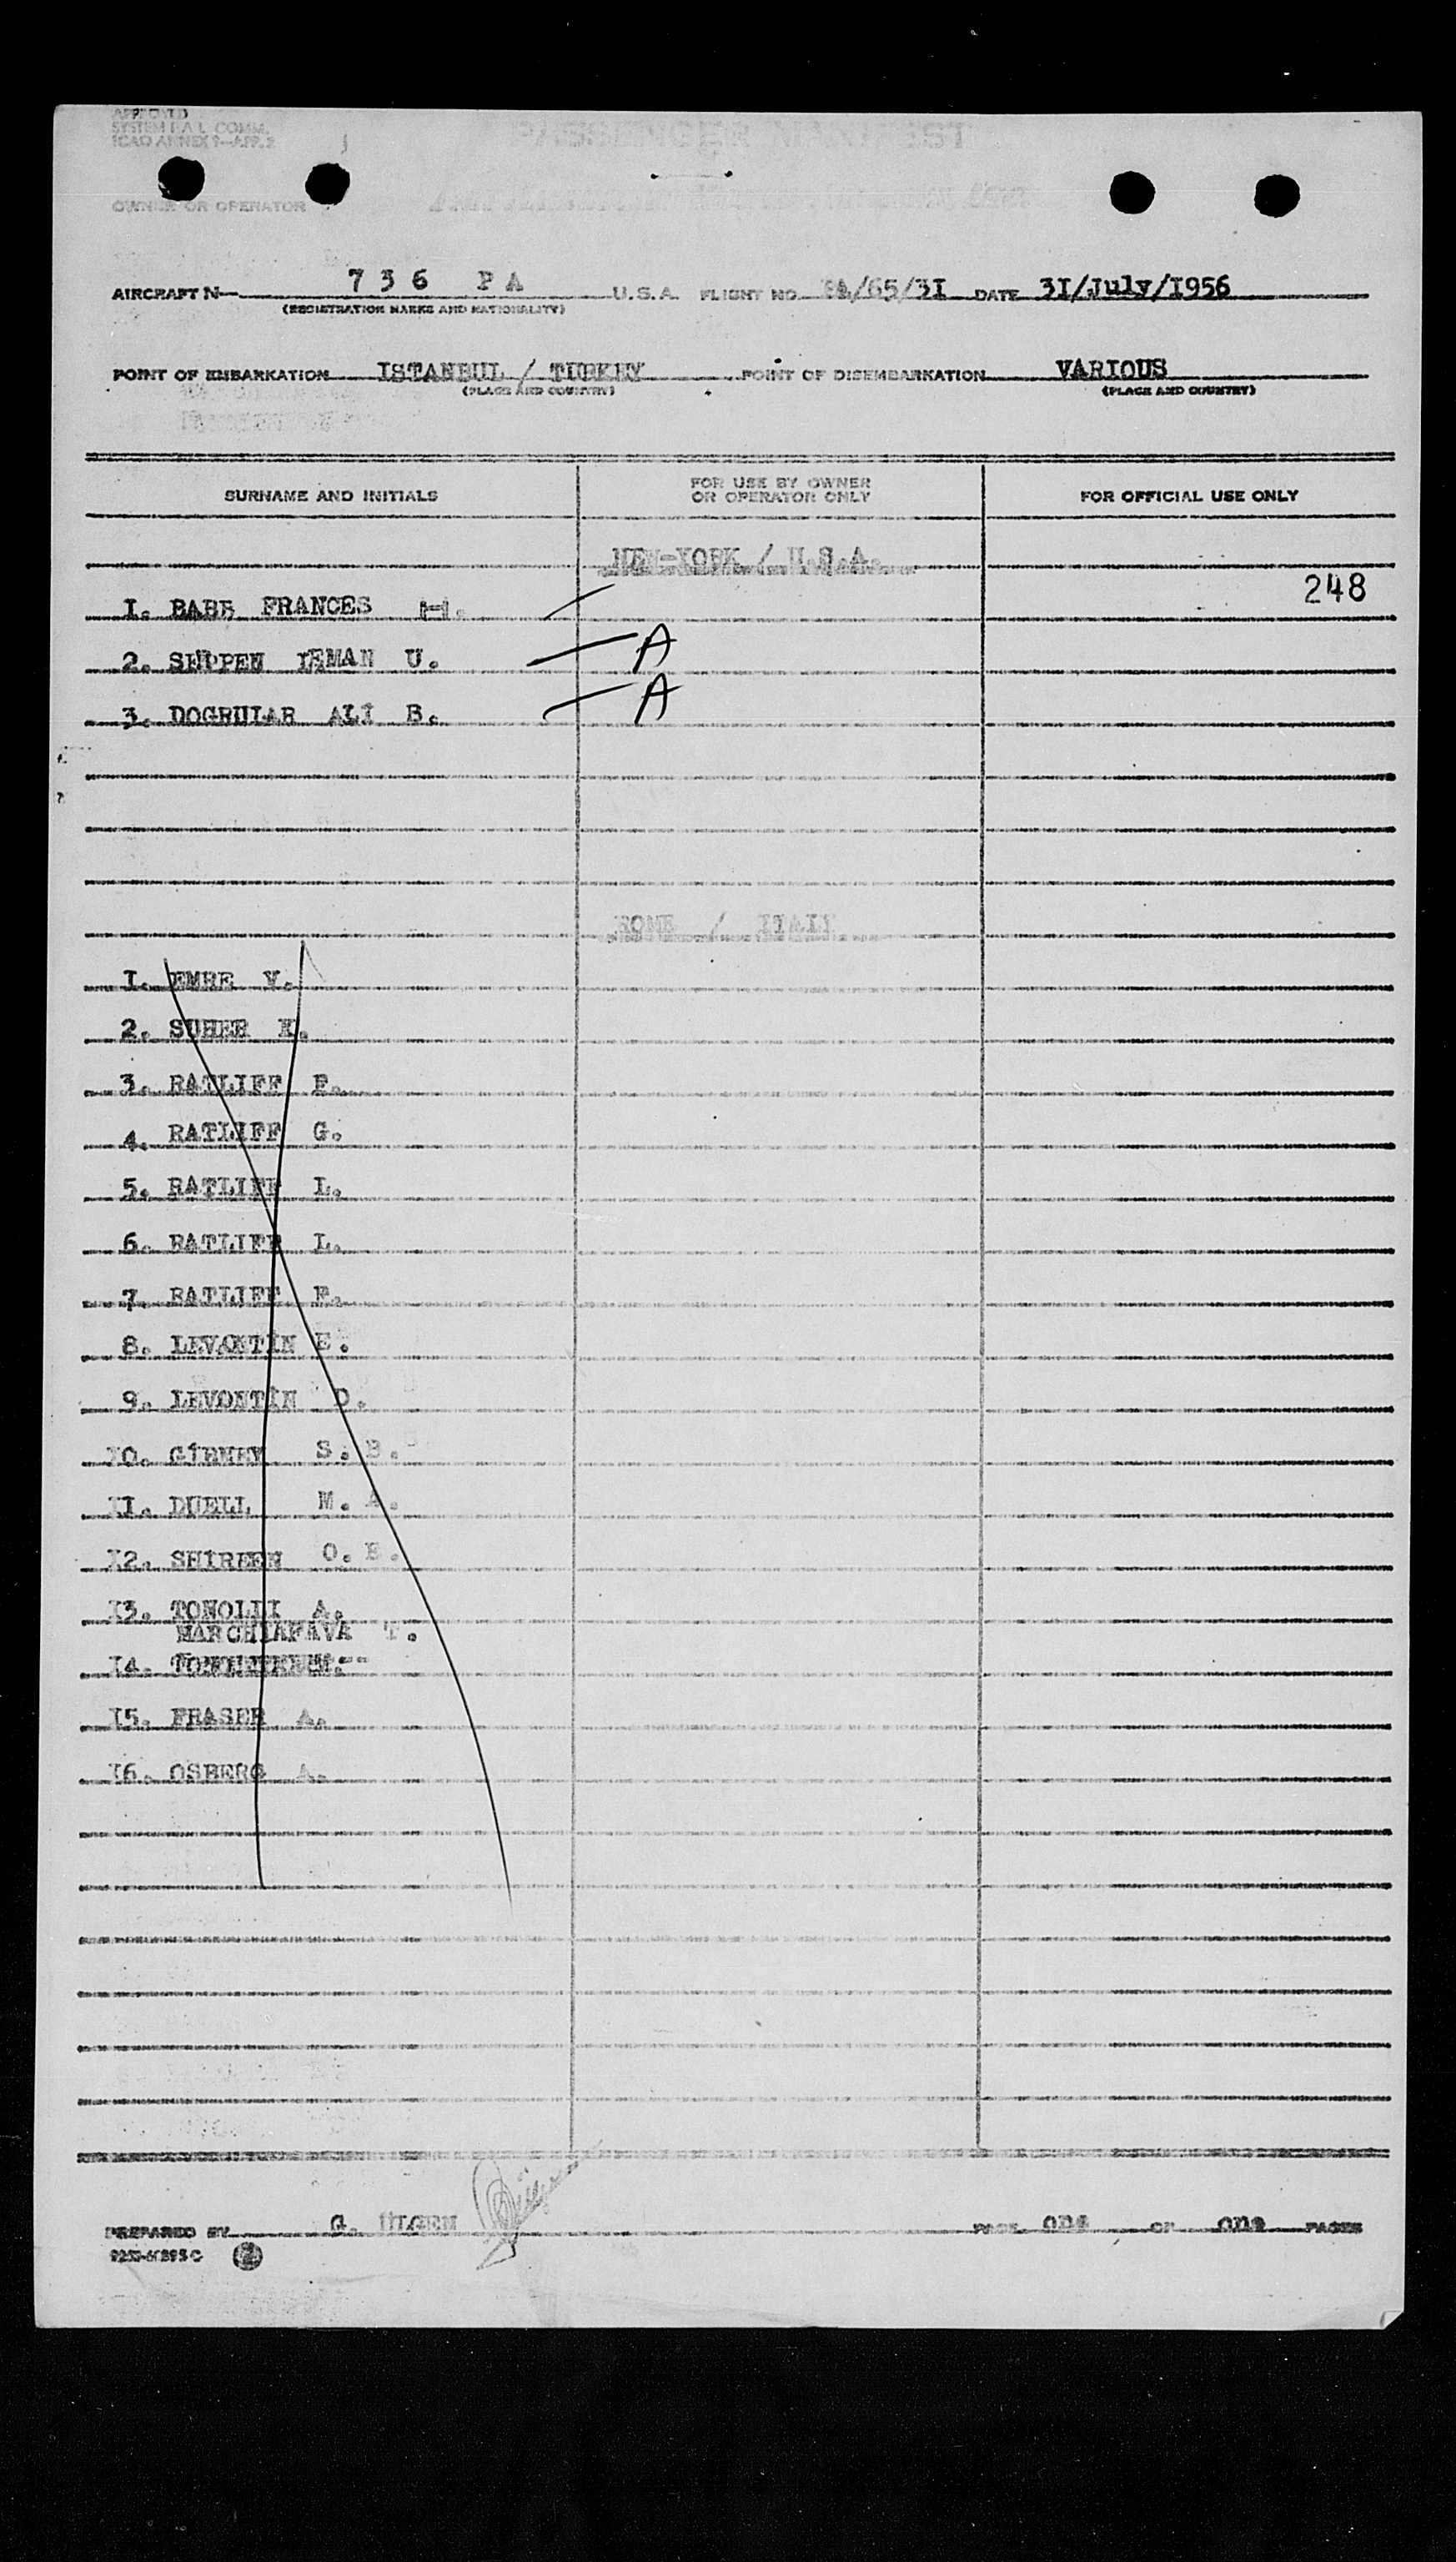 APPROVED
SYSTEM F.A.L. COMM.
ICAO ANNEX 9—APP. 2
PASSENGER MANIFEST
OWNER OR OPERATOR
AIRCRAFT N— 7 3 6 P A U.S.A. FLIGHT NO. PA/65/3I DATE 3I/July/I956
(REGISTRATION MARKS AND NATIONALITY)
POINT OF EMBARKATION ISTANBUL / TURKEY POINT OF DISEMBARKATION VARIOUS
(PLACE AND COUNTRY) (PLACE AND COUNTRY)
SURNAME AND INITIALS FOR USE BY OWNER OR OPERATOR ONLY FOR OFFICIAL USE ONLY
NEW-YORK / U.S.A.
248
I. BABB FRANCES H.
2. U. A
3. DOGRULAR ALİ B. A
ROME / ITALY
I. EMRE V.
2. SUHER
3. RATLIFF F.
4. RATLIFF G.
5. RATLIFF L.
6. RATLIFF L.
7. RATLIFF F.
8. LEVANTİN E.
9. LEVONTİN D.
I0. GİBNEY S. B.
II. DUELL M. A.
I2. SHİREEN O. E.
I3. TONOLLI A.
MARCHIAFAVA T.
I4.
I5. FRASER A.
I6. OSBERG A.
PREPARED BY G. ULGEN PAGE one OF one PAGES